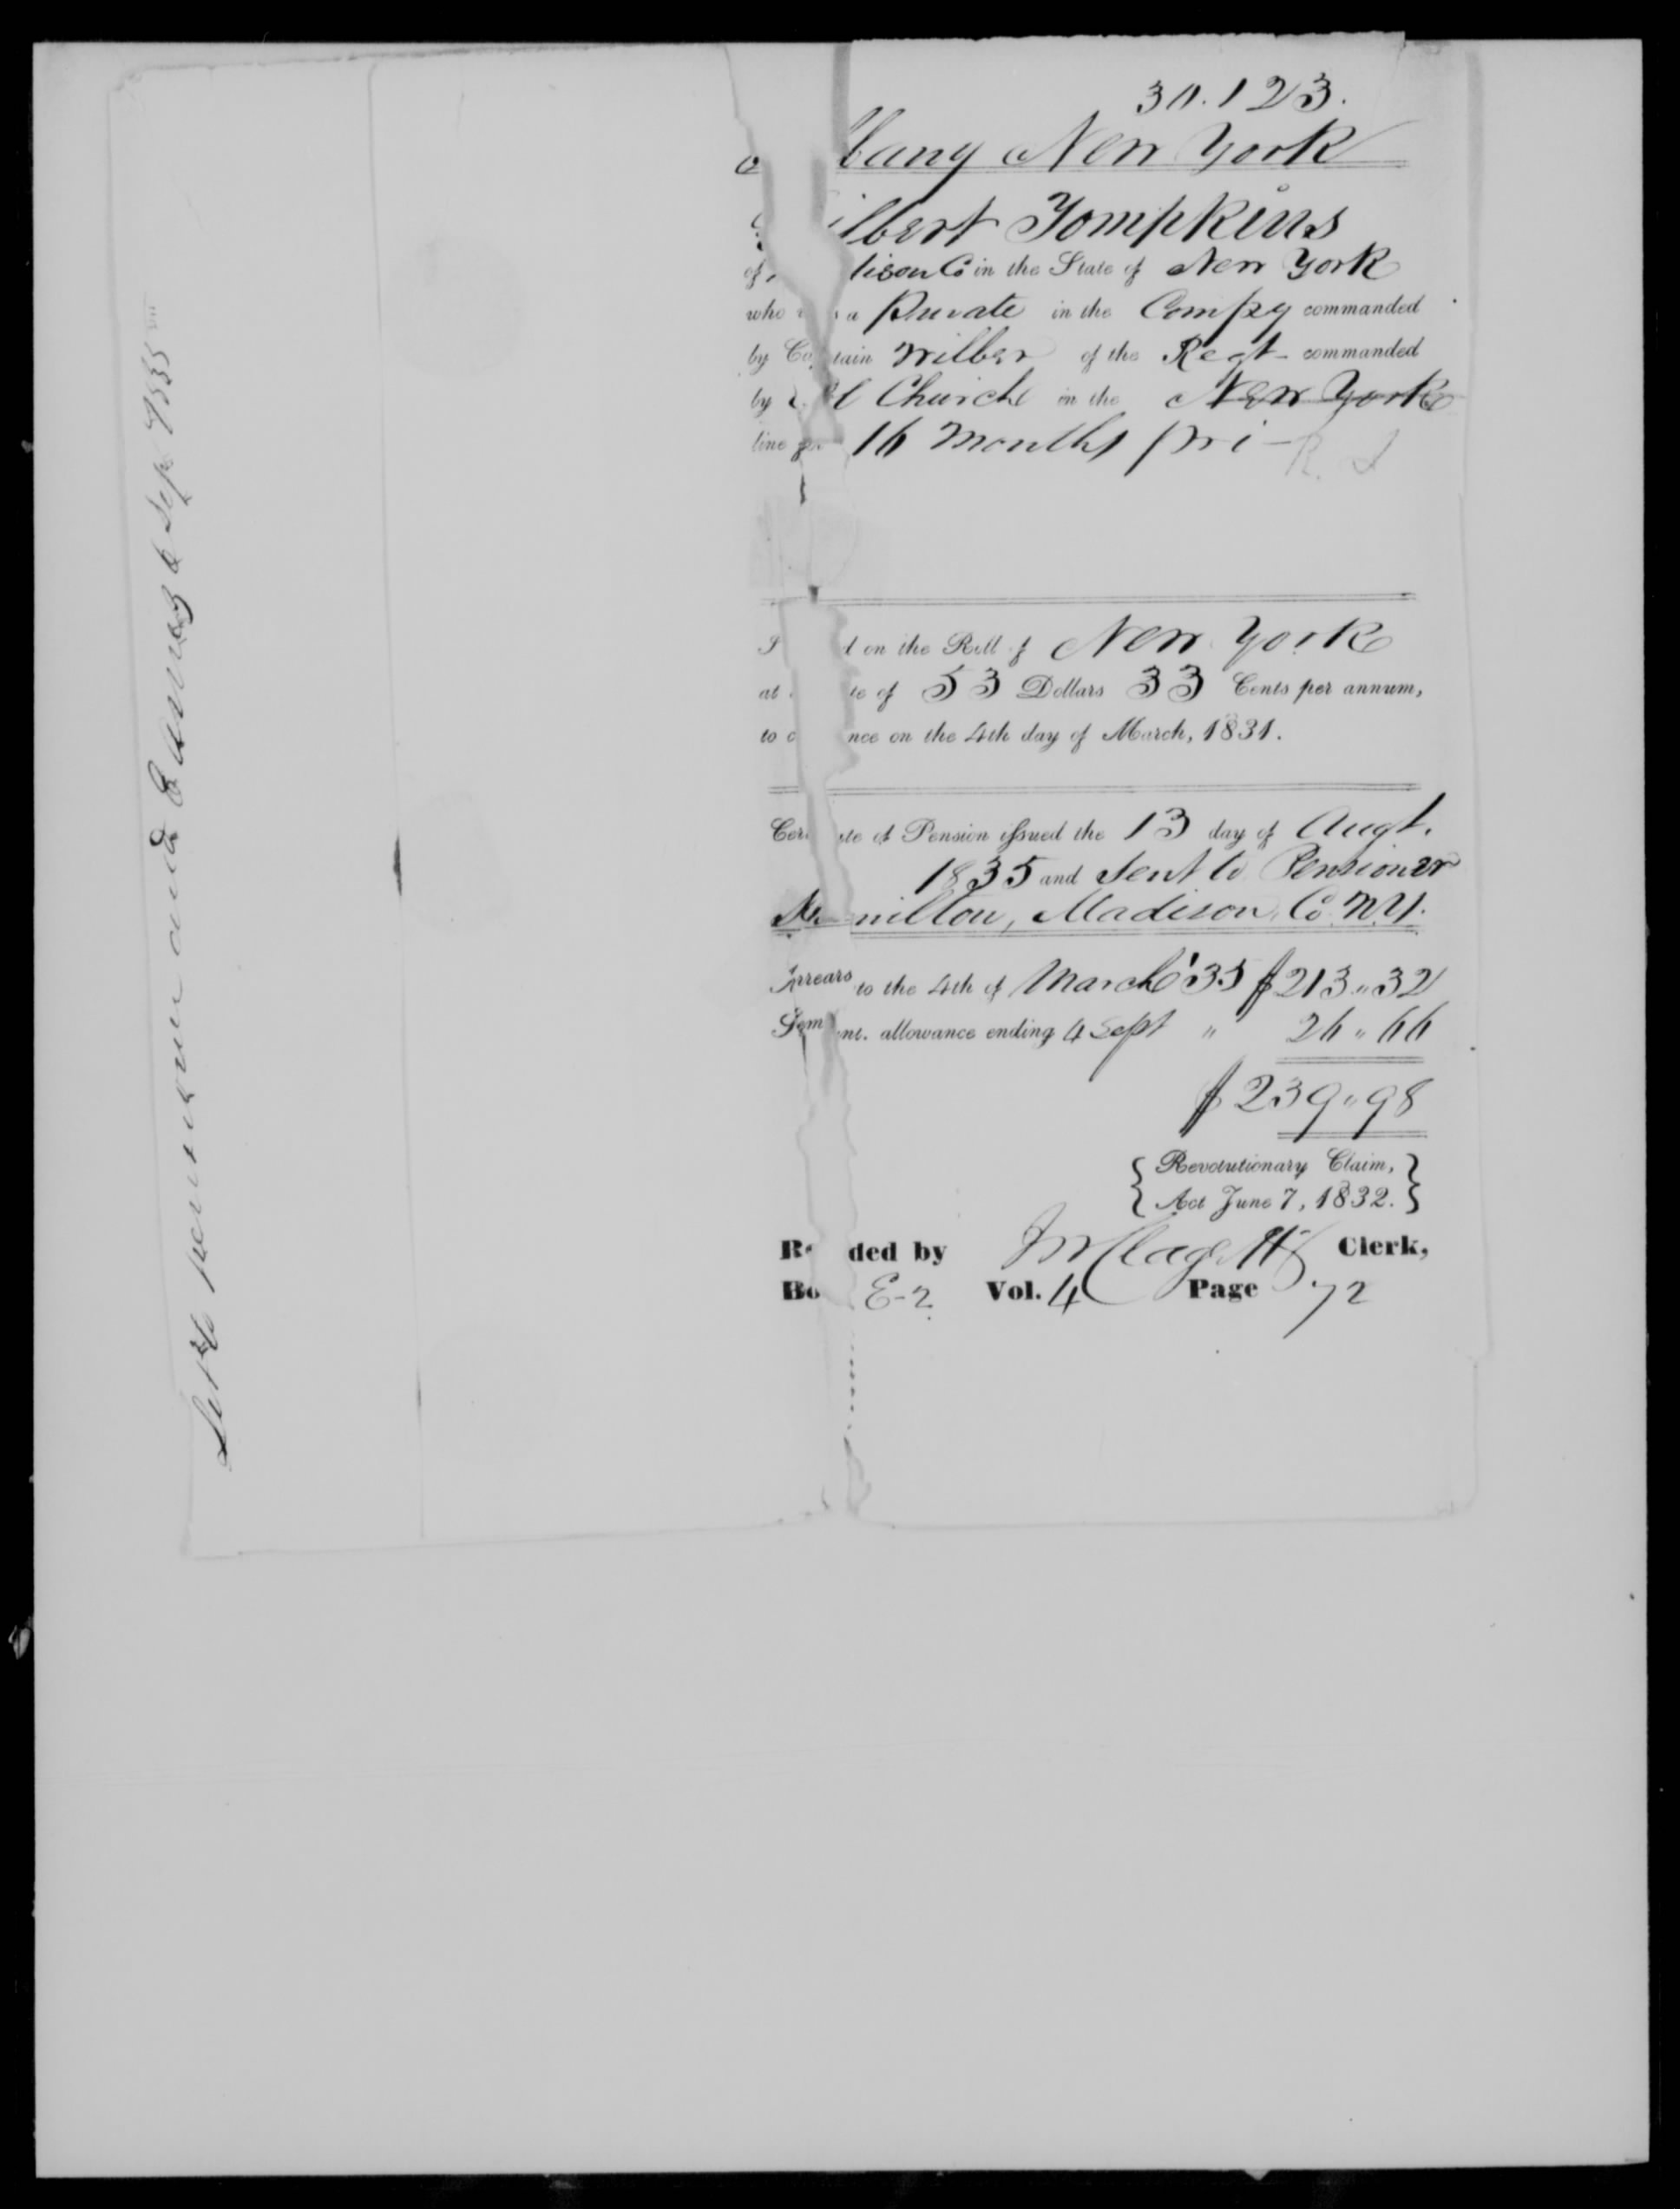 30.123.
bany New York
ilbert Tompkins
of dison Co in the State of New York
who was a Private in the Compy commanded
by Captain Wilber of the Regt commanded
by Col Church in the New York
line for 16 Months pri-
d on the Roll of New York
at te of 53 Dollars 33 Cents per annum,
to c nce on the 4th day of March, 1831.
Cer te of Pension issued the 13 day of Augt.
1835 and Sent to Pensioner
milton, Madison Co. N.Y.
Arrears to the 4th of March '35 $213..32
Sem nl. allowance ending 4 Sept " 26..66
$239..98
{Revolutionary Claim,}
{Act June 7, 1832.}
Re ded by Clerk,
Bo E-2 Vol. 4 Page 72
Letter pensioner and Sep 1835